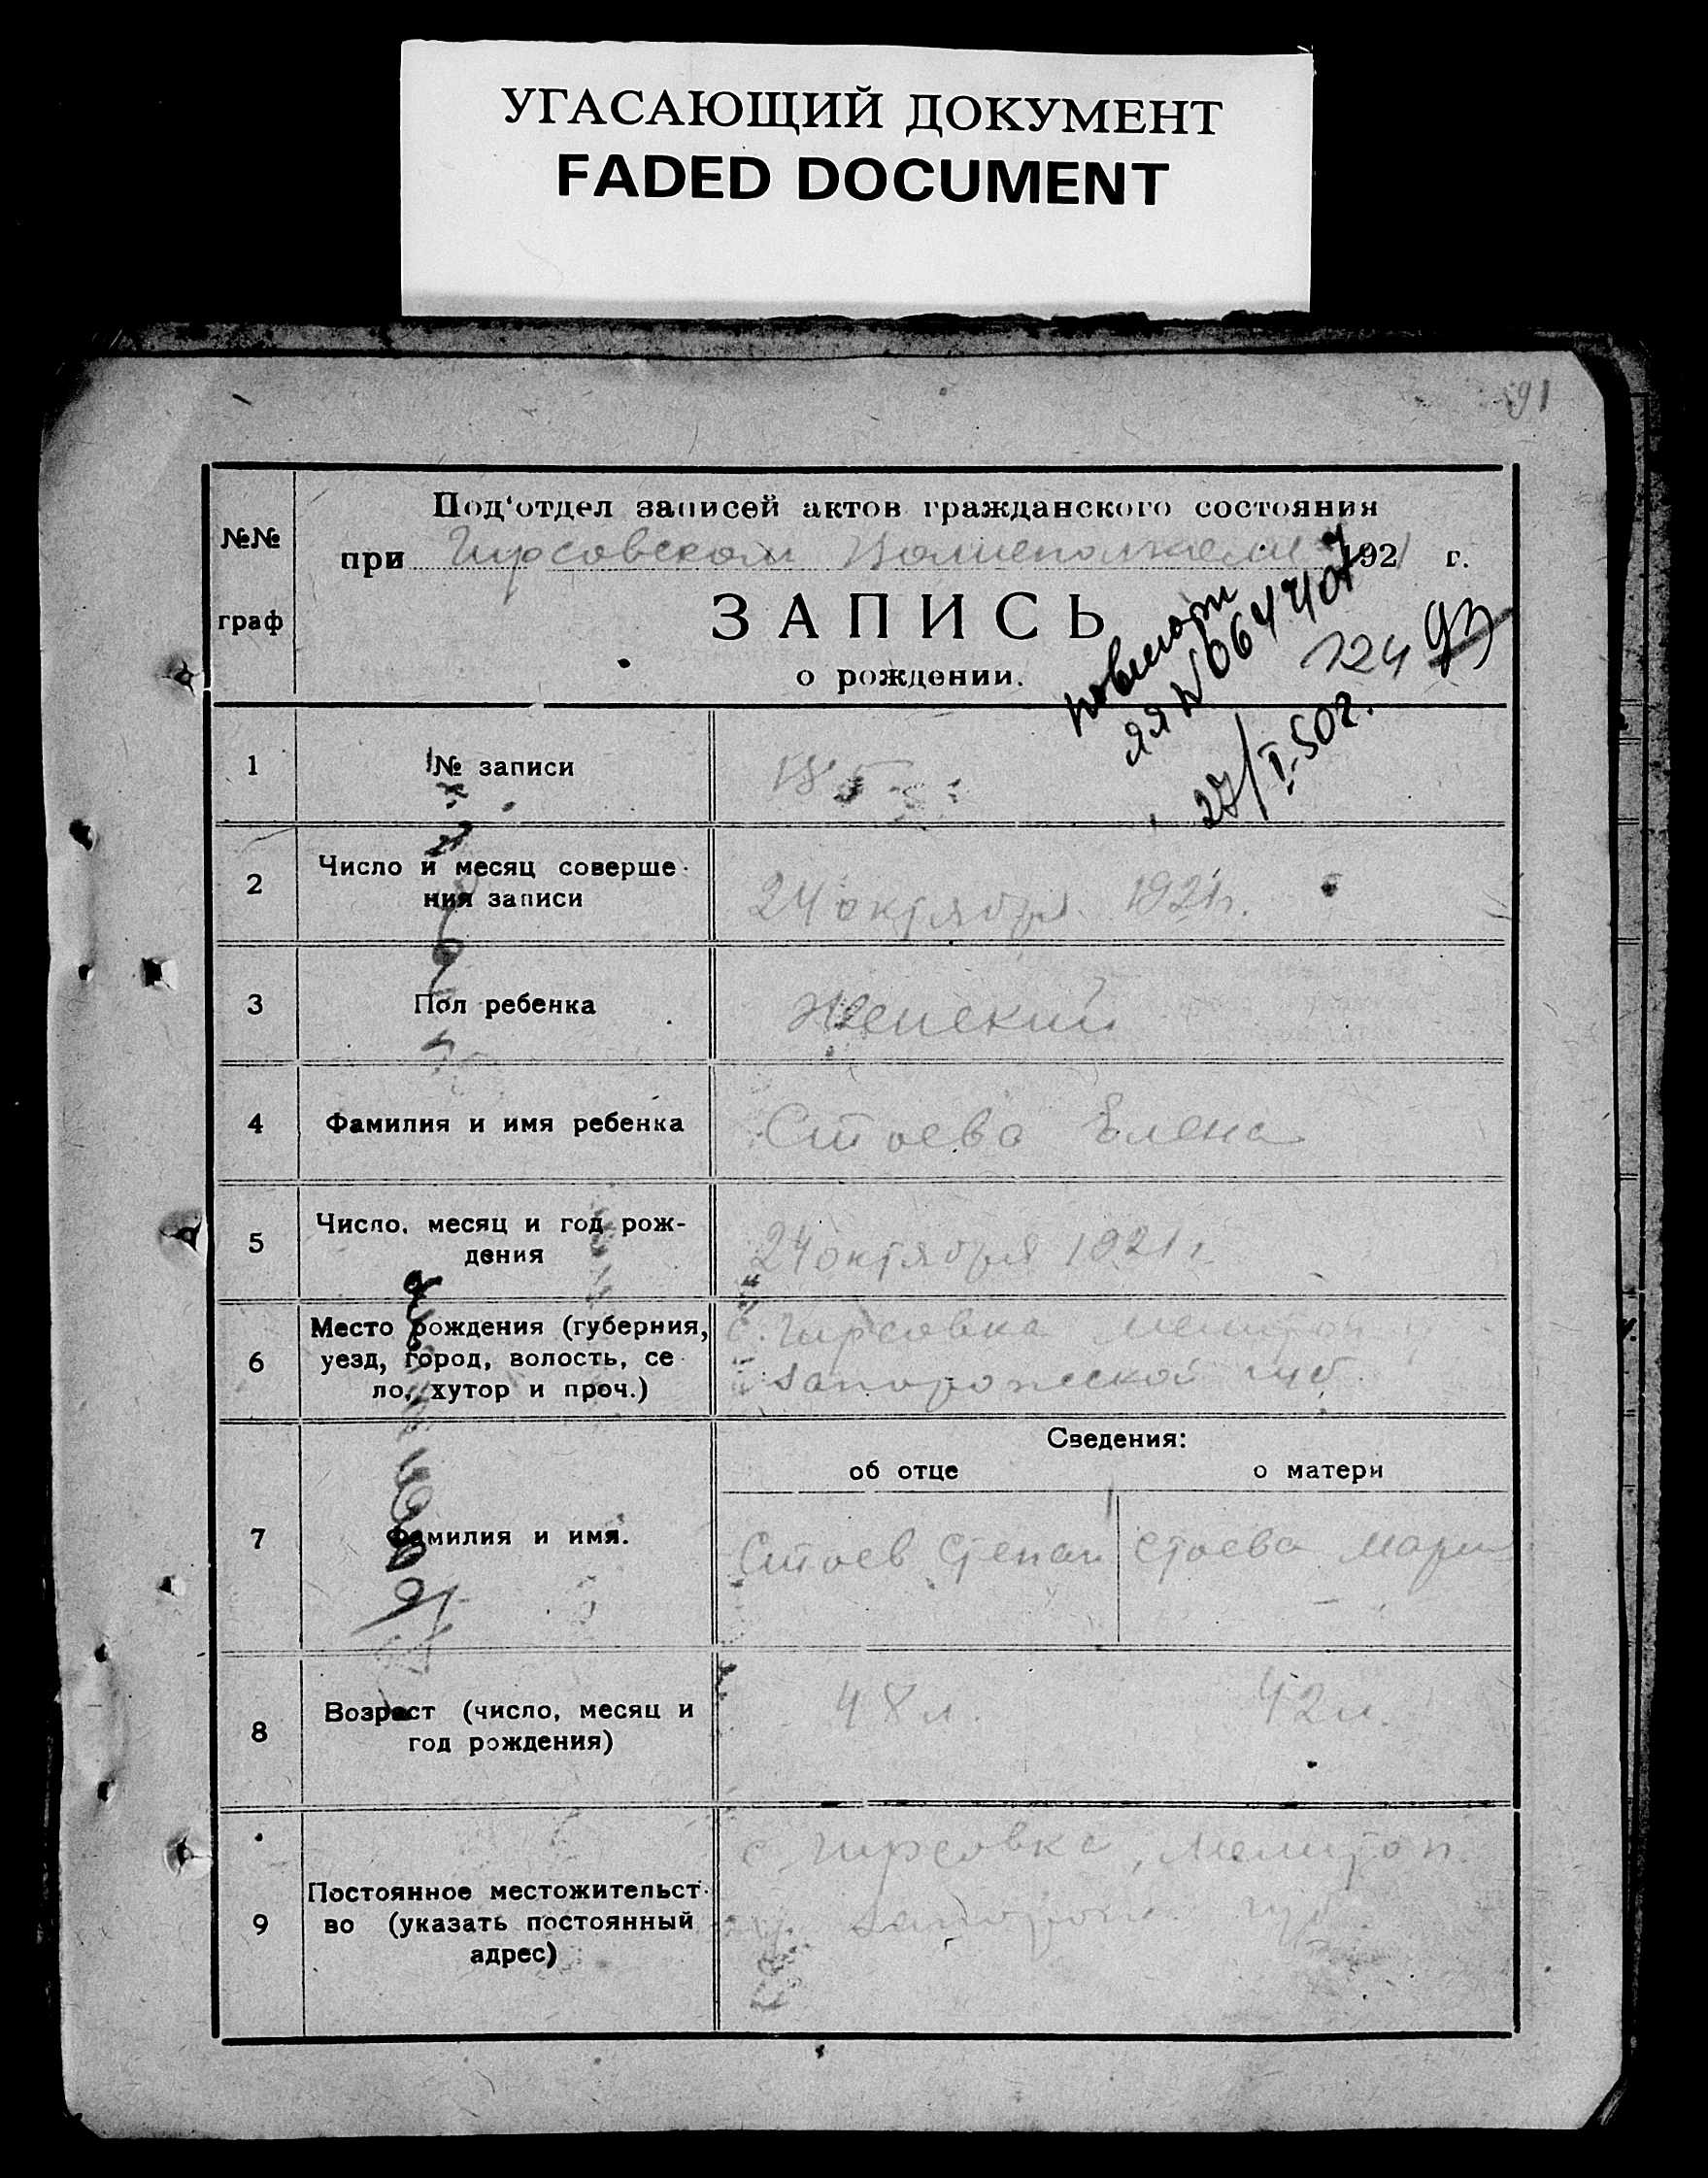 УГАСАЮЩИЙ ДОКУМЕНТ
FADED DOCUMENT
91
№№
граф
Под'отдел записей актов гражданского состояния
при Гирсовском 1921 г.
ЗАПИСЬ
о рождении.
124 93
27/I-50г.
1 № записи 185
2 Число и месяц соверше-
ния записи 24 октября 1921г.
3 Пол ребенка Женский
4 Фамилия и имя ребенка Стоева Елена
5 Число, месяц и год рож-
дения 24 октября 1921г.
6 Место рождения (губерния,
уезд, город, волость, се
ло, хутор и проч.)
с. Гирсовка Мелитоп у
Запорожской губ.
Сведения:
об отце о матери
7 Фамилия и имя. Стоев Степан Стоева Мария
8 Возраст (число, месяц и
год рождения) 48 л. 42 л.
9 Постоянное местожительст-
во (указать постоянный
адрес)
с Гирсовка, Мелитоп.
у. Запорож. губ.